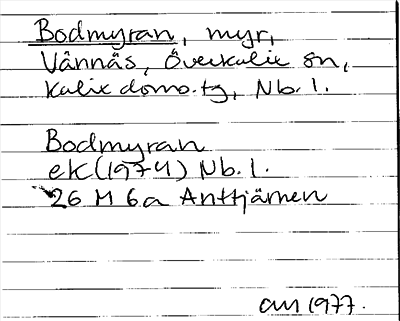 Bodmyran, myr,
Vännäs, Överkalix sn,
Kalix doms.tg, Nb.l.
Bodmyran
ek (1974) Nb.l.
26 M 6a Anttjärnen
1977.